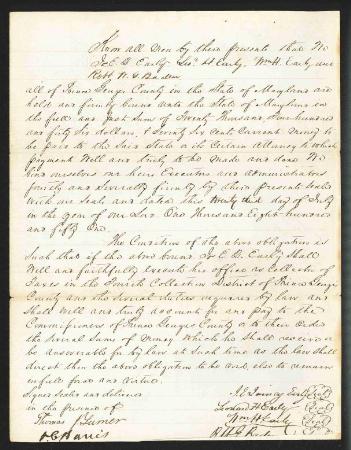 Know all Men by these presents that We
J. E. D. Early, H Early, Wm H. Early and
Robt W. G. Baden
all of Prince Georges County in the State of Maryland are
held and firmly bound unto the State of Maryland in
the full and just Sum of Twenty thousand hundred
and fifty Six dollars, & Seventy Six Cents Current Money to
be paid to the Said State or its Certain Attorney to which
payment Well and truly to be Made and done We
bind ourselves our heirs Executors and Administrators
jointly and Severally firmly by these presents Sealed
with our Seals and dated this day of July
in the year of our Lord One thousand Eight hundred
and fifty One.
The Condition of the above obligation is
Such that if the above bound J. E. D. Early Shall
Well and faithfully execute his office as Collector of
Taxes in the Fourth Collection District of Prince Georges
County and the Several duties required by law and
Shall Well and truly account for and pay to the
Commissioners of Prince Georges County or to their Order
the Several Sums of Money Which he Shall receive or
be answerable for by law at Such time as the law Shall
direct then the above obligation to be void, else to remain
in full force and virtue.
Signed Sealed and delivered
in the presence of
Thomas Turner
Harris
Early (Seal)
Leonard H Early (Seal)
Wm H Early (Seal)
(Seal)